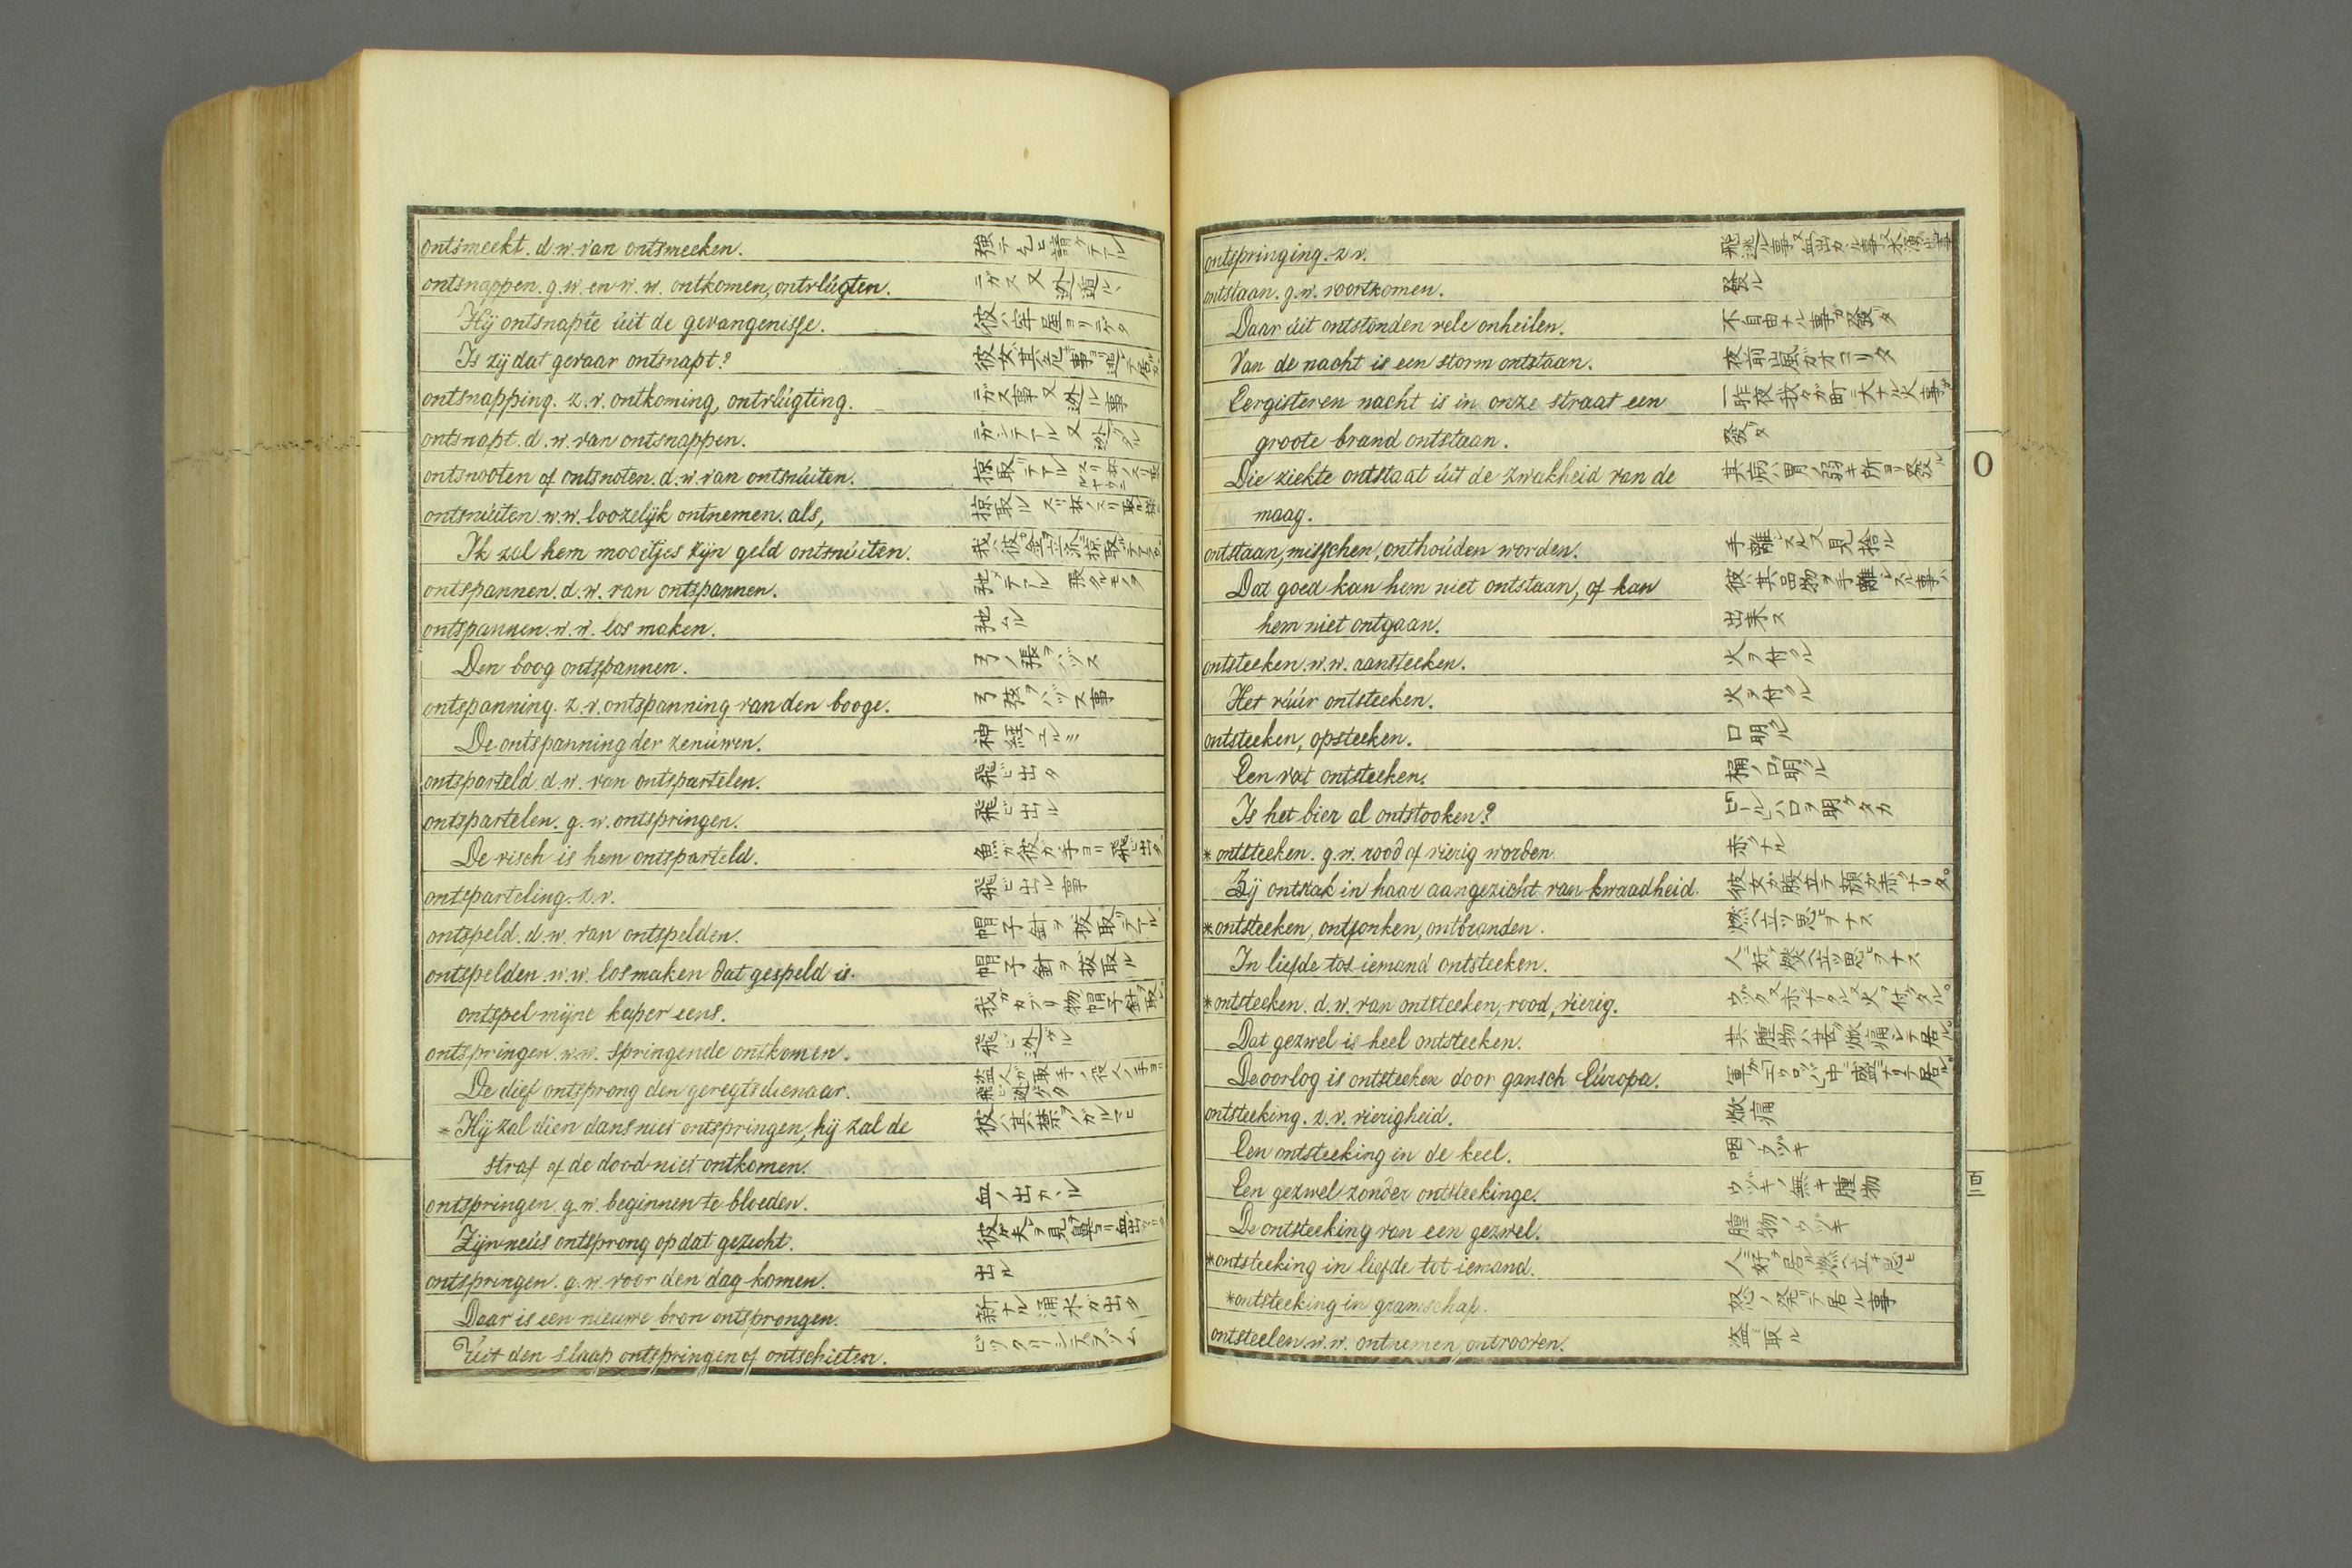 ontsmeekt. d.w. van ontsmeeken. 強テ乞ヒ請ケテアル
ontsnappen. g.w. en w.w. ontkomen, ontvlúgten. ニガス又迯遁ル、
Hÿ ontsnapte úit de gevangenisse. 彼ハ牢屋ヨリニゲタ
Is zÿ dat gevaar ontsnapt? 彼女ハ其危事ヨリ
ontsnapping. z.v. ontkoming, ontvlúgting. ニガス事又迯ル事
ontsnapt. d.w. van ontsnappen. ニガシテアル又迯ゲタル
ontsnooten of ontsnoten. d.w. van ontsnúiten. 掠取テアル
ontsnúiten. w.w. loozelÿk ontnemen. als, 掠取ル
Ik zal hem mooitjes zÿn geld ontsnúiten.
ontspannen. d.w. van ontspannen. 弛メテアル
ontspannen. w.w. los maken. 弛ムル
Den boog ontspannen. 弓ノ張ヲハヅス
ontspanning. z.v. ontspanning van den booge. 弓弦ヲハヅス事
De ontspanning der zenúwen. 神経ノユルミ
ontsparteld. d.w. van ontspartelen. 飛ビ出タ
ontspartelen. g.w. ontspringen. 飛ビ出ル
De visch is hem ontsparteld. 魚ガ彼ガ手ヨリ飛ビ出タ
ontsparteling. z.v. 飛ビ出ル事
ontspeld. d.w. van ontspelden. 帽子針ヲ抜取テアル
ontspelden. w.w. losmaken dat gespeld is. 帽子針ヲ抜取ル
ontspel mÿne kaper eens. 我ガカブリ物ノ帽子針ヲ取レ
ontspringen. w.w. springende ontkomen. 飛ビ迯ゲル
De dief ontsprong den geregtsdienaar. 盗人ガ取手ノ役人ノ手ヨリ飛ビ迯ゲタ
* Hÿ zal dien dans niet ontspringen, hÿ zal de 彼ハ其禁ヲノガルマヒ
straf of de dood niet ontkomen.
ontspringen. g.w. beginnen te bloeden. 血ノ出カヽル
Zÿn neús ontsprong op dat gezicht.
ontspringen. g.w. voor den dag komen. 出ル
Daar is een nieuwe bron ontsprongen. 新ナル涌水ガ出タ
Úit den slaap ontspringen of ontschieten.
ontspringing. z.v.
ontstaan. g.w. voortkomen. 發ル
Daar úit ontstonden vele onheilen. 不自由ナル事ガ發タ
Van de nacht is een storm ontstaan. 夜前嵐ガオコリタ
Eergisteren nacht is in onze straat een 一昨夜我々ガ町ニ大ナル火事ガ
groote brand ontstaan. 發タ
Die ziekte ontstaat úit de zwakheid van de 其病ハ胃ノ弱キ所ヨリ發ル
maag.
ontstaan, misschen, onthoúden worden. 手離レスル又見捨ル
Dat goed kan hem niet ontstaan, of kan 彼ハ其品物ヲ手離レスル事ハ
hem niet ontgaan. 出来ヌ
ontsteeken. w.w. aansteeken. 火ヲ付クル
Het vúúr ontsteeken. 火ヲ付クル
ontsteeken, opsteeken. 口明ル
Een vat ontsteeken. 桶ノ口ヲ明ル
Is het bier al ontstooken? ビールハ口ヲ明ケタカ
* ontsteeken. g.w. rood of vierig worden. 赤クナル
Zÿ ontstak in haar aangezicht van kwaadheid. 彼女ガ腹立テ顔ガ赤クナリタ。
* ontsteeken, ontfonken, ontbranden. 燃ヘ立ツ思ヒヲナス
In liefde tot iemand ontsteeken. 人ヲ好テ燃ヘ立ツ思ヒヲナス
* ontsteeken. d.w. van ontsteeken, rood, vierig.
Dat gezwel is heel ontsteeken. 其腫物ハ甚ダ焮痛シテ居ル。
De oorlog is ontsteeken door gansch Eúropa. 軍ガエウロッパ中ニ盛ニナリテ居ル。
ontsteeking. z.v. vierigheid. 焮痛
Een ontsteeking in de keel. 咽ノウヅキ
Een gezwel zonder ontsteekinge. ウヅキノ無キ腫物
De ontsteeking van een gezwel. 腫物ノウヅキ
* ontsteeking in liefde tot iemand.
* ontsteeking in gramschap. 怒ノ発テ居ル事
ontsteelen. w.w. ontnemen, ontrooven. 盗ミ取ル
O